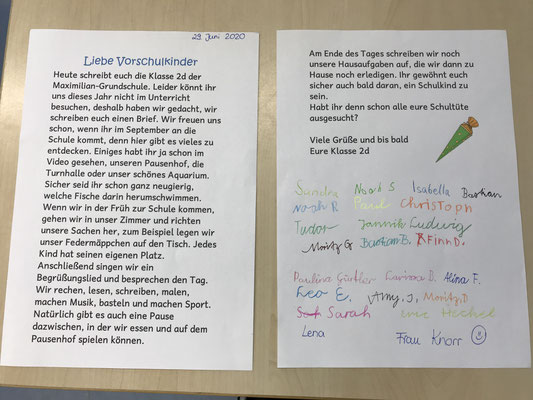 29. Juni 2020
Liebe Vorschulkinder
Heute schreibt euch die Klasse 2d der
Maximilian-Grundschule. Leider könnt ihr
uns dieses Jahr nicht im Unterricht
besuchen, deshalb haben wir gedacht, wir
schreiben euch einen Brief. Wir freuen uns
schon, wenn ihr im September an die
Schule kommt, denn hier gibt es vieles zu
entdecken. Einiges habt ihr ja schon im
Video gesehen, unseren Pausenhof, die
Turnhalle oder unser schönes Aquarium.
Sicher seid ihr schon ganz neugierig,
welche Fische darin herumschwimmen.
Wenn wir in der Früh zur Schule kommen,
gehen wir in unser Zimmer und richten
unsere Sachen her, zum Beispiel legen wir
unser Federmäppchen auf den Tisch. Jedes
Kind hat seinen eigenen Platz.
Anschließend singen wir ein
Begrüßungslied und besprechen den Tag.
Wir rechnen, lesen, schreiben, malen,
machen Musik, basteln und machen Sport.
Natürlich gibt es auch eine Pause
dazwischen, in der wir essen und auf dem
Pausenhof spielen können.
Am Ende des Tages schreiben wir noch
unsere Hausaufgaben auf, die wir dann zu
Hause noch erledigen. Ihr gewöhnt euch
sicher auch bald daran, ein Schulkind zu
sein.
Habt ihr denn schon alle eure Schultüte
ausgesucht?
Viele Grüße und bis bald
Eure Klasse 2d
Sandra Noah S Isabella Bastian
Noah R Paul Christoph
Tudor Jannik Ludwig
Moritz G Bastian B. Finn D.
Paulina Günther Larissa D. Alina F.
Leo E. Amy, J, Moritz D
Sarah
Lena Frau Knorr